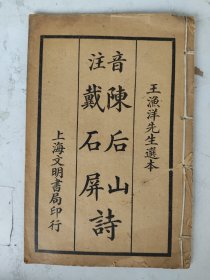 王漁洋先生選本
音注
陳后山
戴石屏
詩
上海文明書局印行